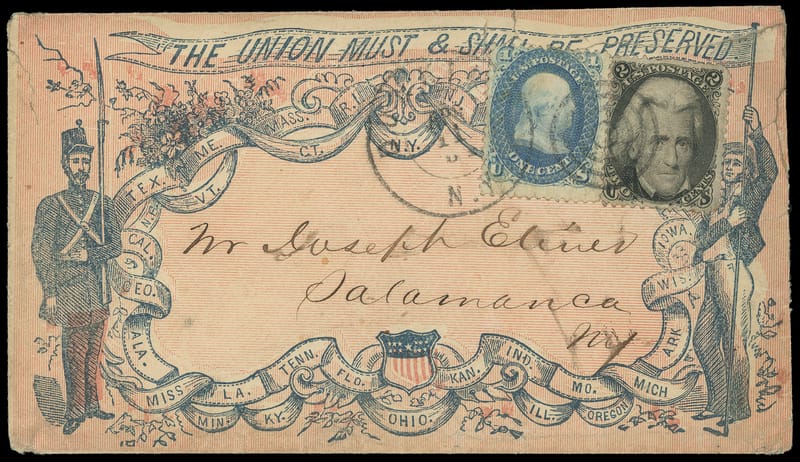 THE UNION MUST & SHALL BE PRESERVED.
TEX. ME. MASS. R.I. N.J.
N.H. VT. CT. N.Y.
U.S. POSTAGE
1 1
ONE CENT
U.S. POSTAGE
2 2
TWO CENTS
N.Y.
CAL.
GEO.
ALA.
IOWA
WIS.
ARK
Mr Joseph
Salamanca
NY
MISS LA. TENN. FLO. KAN. IND. MO. MICH
MIN. KY. OHIO. ILL. OREGON